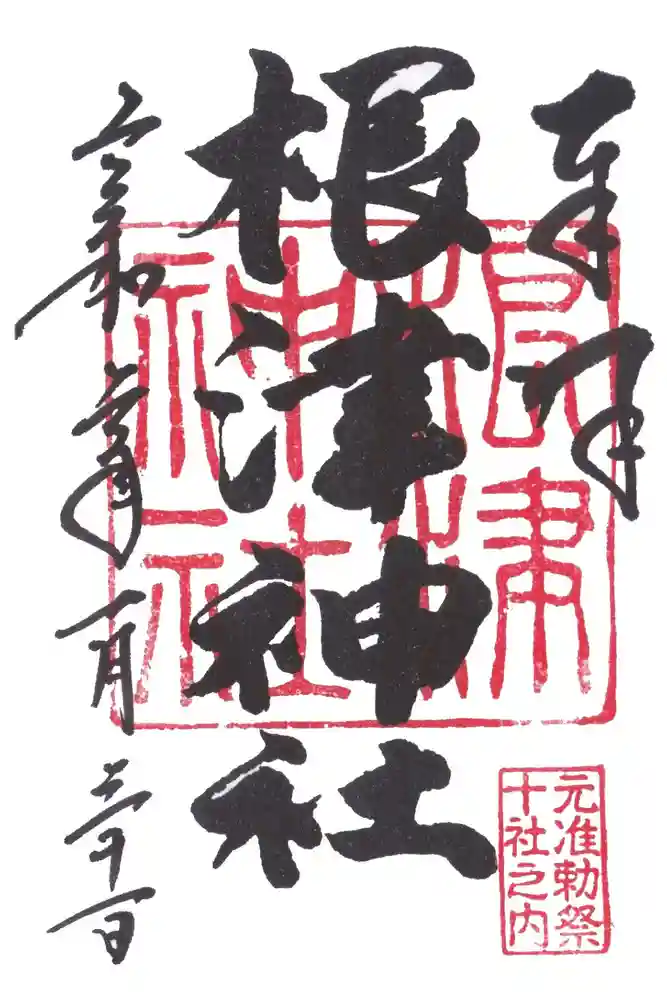 奉拝
根津神社
根津
神社
元准勅祭
十社之内
令和 年 一月 三十一日